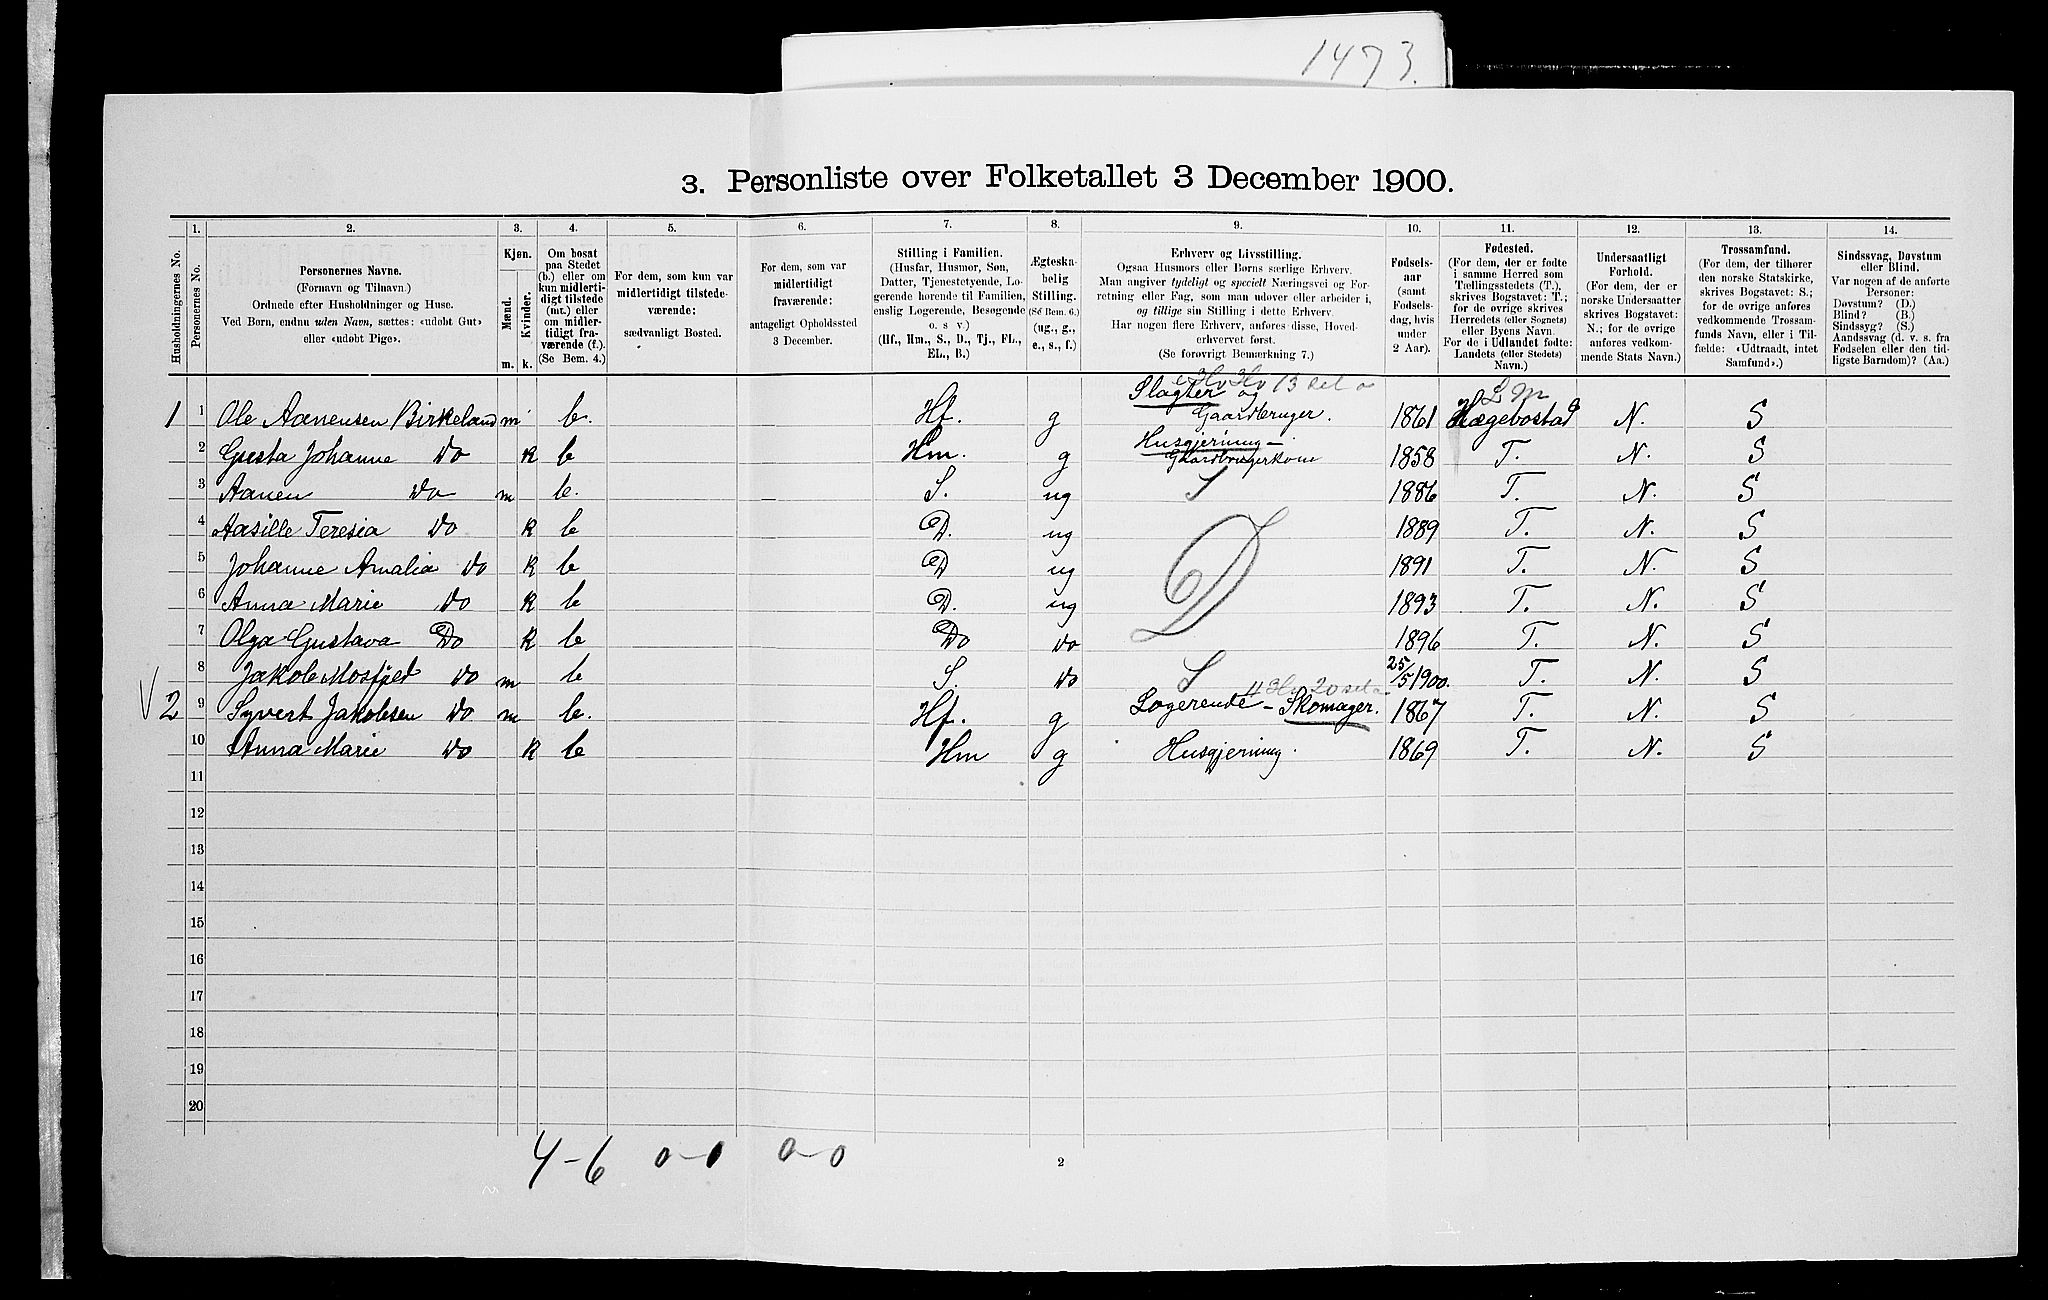 1473.
3. Personliste over Folketallet 3 December 1900.
1. 2. 3. 4. 5. 6. 7. 8. 9. 10. 11. 12. 13. 14.
Husholdningernes No.
Personernes No.
Personernes Navne.
(Fornavn og Tilnavn.)
Ordnede efter Husholdninger og Huse.
Ved Børn, endnu uden Navn, sættes: «udøbt Gut»
eller «udøbt Pige».
Kjøn.
Mænd.
Kvinder.
m. k.
Om bosat
paa Stedet
(b.) eller om
kun midlerti-
digt tilstede
(mt.) eller
om midler-
tidigt fra-
værende (f.).
(Se Bem. 4.)
For dem, som kun var
midlertidigt tilstede-
værende:
sædvanligt Bosted.
For dem, som var
midlertidigt
fraværende:
antageligt Opholdssted
3 December.
Stilling i Familien.
(Husfar, Husmor, Søn,
Datter, Tjenestetyende, Lo-
gerende hørende til Familien,
enslig Logerende, Besøgende
o. s v.)
(Hf., Hm., S., D., Tj., FL.,
EL., B.)
Ægteska-
belig
Stilling.
(Se Bem. 6.)
(ug., g.,
e., s., f.)
Erhverv og Livsstilling.
Ogsaa Husmors eller Børns særlige Erhverv.
Man angiver tydeligt og specielt Næringsvei og For-
retning eller Fag, som man udøver eller arbeider i,
og tillige sin Stilling i dette Erhverv.
Har nogen flere Erhverv, anføres disse, Hoved-
erhvervet først.
(Se forøvrigt Bemærkning 7.)
Fødsels-
aar
(samt
Fødsels-
dag, hvis
under
2 Aar).
Fødested.
(For dem, der er fødte
i samme Herred som
Tællingsstedets (T.),
skrives Bogstavet: T.;
for de øvrige skrives
Herredets (eller Sognets)
eller Byens Navn.
For de i Udlandet fødte:
Landets (eller Stedets)
Navn.)
Undersaatligt
Forhold.
(For dem, der er
norske Undersaatter
skrives Bogstavet:
N.; for de øvrige
anføres vedkom-
mende Stats Navn.)
Trossamfund.
(For dem, der tilhører
den norske Statskirke,
skrives Bogstavet: S.;
for de øvrige anføres
vedkommende Trossam-
funds Navn, eller i Til-
fælde: «Udtraadt, intet
Samfund».)
Sindssvag, Døvstum
eller Blind.
Var nogen af de anførte
Personer:
Døvstum? (D.)
Blind? (B.)
Sindssyg? (S.)
Aandssvag (d. v. s. fra
Fødselen eller den tid-
ligste Barndom)? (Aa.)
1 1 Ole Aanensen Birkeland m b. Hf. g Slagter og Gaardbruger. 1861 Hægebostad N. S
2 Gusta Johanne Do k b Hm. g Husgjerning - Gaardbrugerkone 1858 T. N. S
3 Aanen Do m b. S. ug S 1886 T. N. S
4 Aasille Teresia Do k b D. ug 1889 T. N. S
5 Johanne Amalia Do k b D ug D 1891 T. N. S
6 Anna Marie Do k b D. ug 1893 T. N. S
7 Olga Gustava Do k b Do do 1896 T. N. S
8 Jakob Mosfjed Do m b S. do S 25/5 1900. T. N. S
V 2 9 Syvert Jakobsen Do m b. Hf. g Logerende - Skomager. 1867 T. N. S
10 Anna Marie Do k b Hm g Husgjerning. 1869 T. N. S
11
12
13
14
15
16
17
18
19
20
4-6 0-0 0-0
2